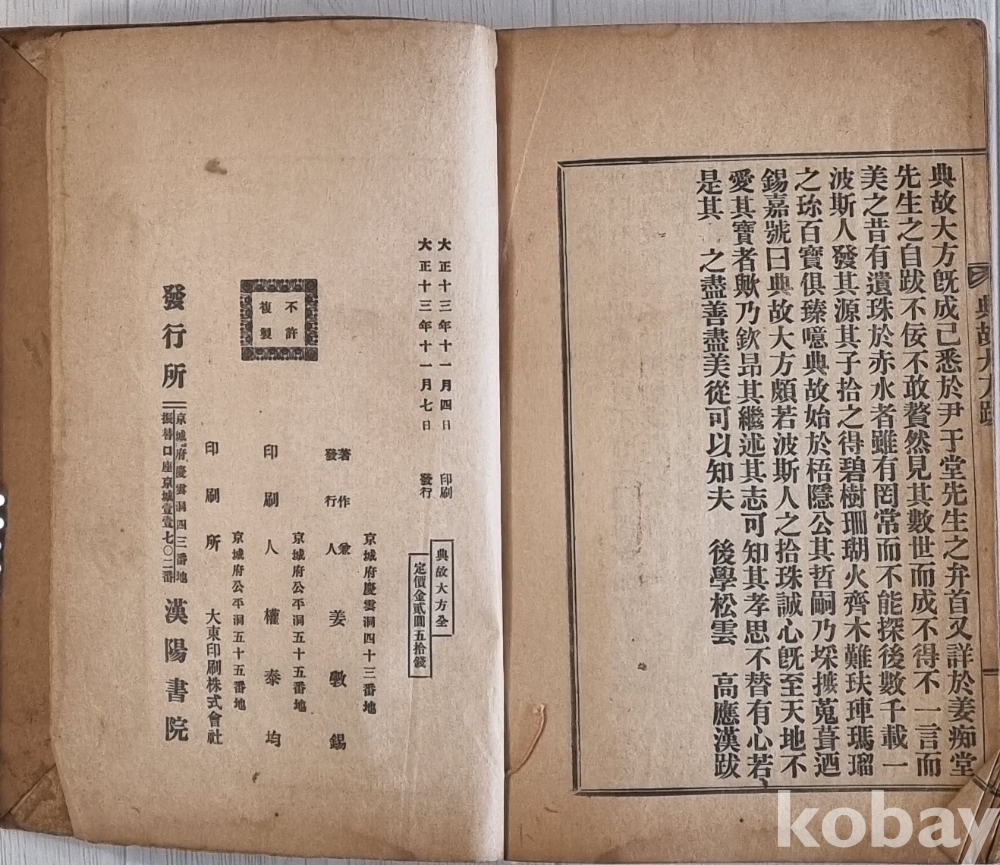 典故大方跋
典故大方旣成已悉於尹于堂先生之弁首又詳於姜痴堂
先生之自跋不佞不敢贅然見其數世而成不得不一言而
美之昔有遺珠於赤水者雖有罔常而不能探後數千載一
波斯人發其源其子拾之得碧樹珊瑚火齊木難玞琿瑪瑠
之珎百寶俱臻噫典故始於梧隱公其哲嗣乃採摭蒐葺迺
錫嘉號曰典故大方頗若波斯人之拾珠誠心旣至天地不
愛其寶者歟乃欽昂其繼述其志可知其孝思不替有心若
是其 之盡善盡美從可以知夫 後學松雲 高應漢跋
大正十三年十一月四日 印刷
大正十三年十一月七日 發行
典故大方全
定價金貳圓五拾錢
不許
複製
京城府慶雲洞四十三番地
著作兼
發行人 姜斅錫
京城府公平洞五十五番地
印刷人 權泰均
京城府公平洞五十五番地
印刷所 大東印刷株式會社
發行所
京城府慶雲洞四三番地
振替口座京城壹壹七〇二番
漢陽書院
kobay